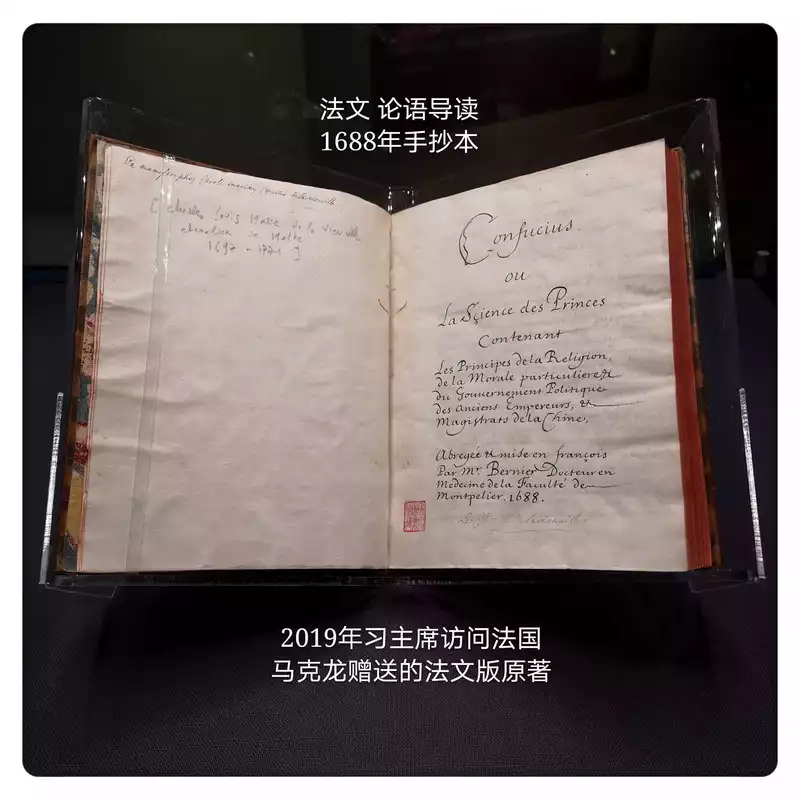 法文 论语导读
1688年手抄本
[ Charles Louis Marie de la Vieuville
chevalier de Malte
1697 - 1771 ]
Confucius
ou
La Sçience des Princes
Contenant
Les Principes de la Religion,
de la Morale particuliere, &
du Gouvernement Politique
des anciens Empereurs, &
Magistrats de la Chine,
Abregée & mise en françois
Par Mr. Bernier Docteur en
Medecine de la Faculté de
Montpelier. 1688.
2019年习主席访问法国
马克龙赠送的法文版原著